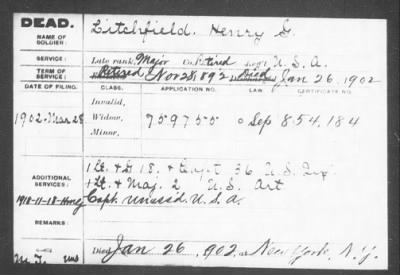 DEAD.
NAME OF SOLDIER: Litchfield. Henry G.
SERVICE: Late rank, Major Co. Retired Reg't U. S. A.
TERM OF SERVICE: Retired Nov 28, 1892 Died Jan 26, 1902
DATE OF FILING. CLASS. APPLICATION NO. LAW. CERTIFICATE NO.
Invalid,
1902-Mar 28 Widow, 759755 o Sep 854,184
Minor,
1 Lt. & 18. & Capt 36 U. S. Inf.
ADDITIONAL SERVICES: 1 Lt. & Maj. 2, U. S. Art
Capt. unassd. U. S. A.
REMARKS:
Died Jan 26, 1902, at New York, N.Y.